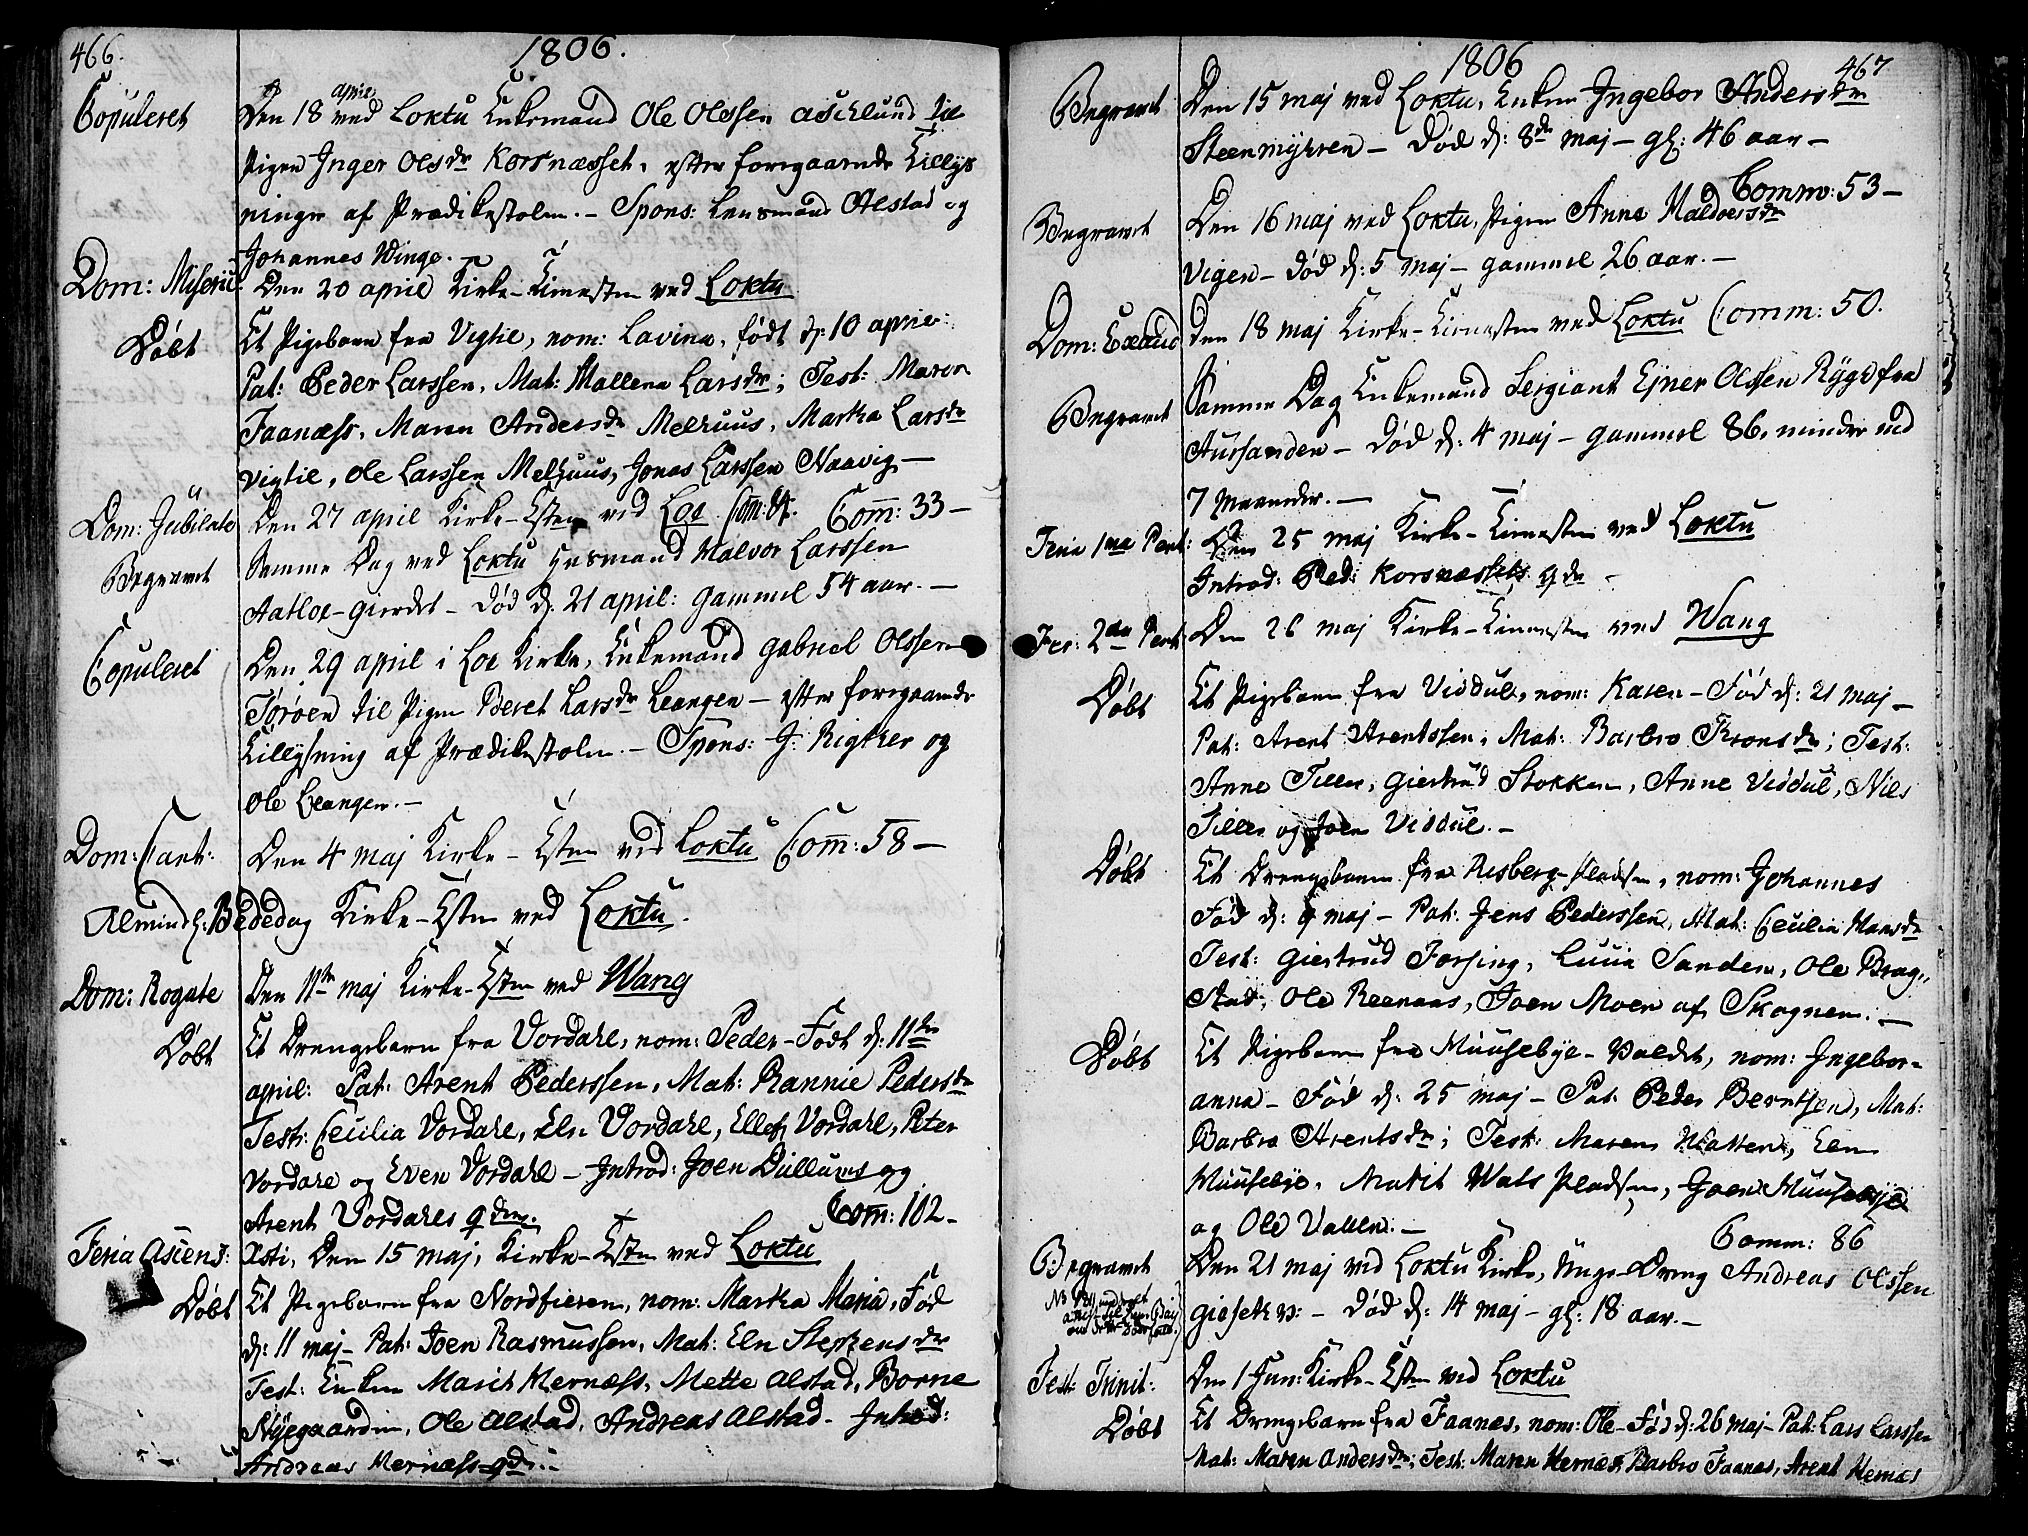 466.
1806.
Copuleret
Den 18 april ved Loktu Enkemand Ole Olssen aschlund til
Pigen Inger Olsdr Korsnæsset, efter foregaaende Tillys
ninger af Prædikestolen. – Spons: Lensmand Alstad og
Johannes Winge.
Dom: Miseric
Den 20 april Kirke-Tienesten ved Loktu
Døbt
Et Pigebarn fra Vigtil, nom: Lavina, født d: 10 april:
Pat: Peder Larssen, Mat: Mallena Larsdr; Test: Maren
Faanæss, Maren Andersdr Melhuus, Martha Larsdr
Vigtil, Ole Larssen Melhuus, Jonas Larssen Naavig –
Dom: Jubilate
Den 27 april Kirke-Tsten ved Loe Com: 33 –
Begravet
Samme Dag ved Loktu Husmand Halvor Larssen
Aatloe-gierdet – Død d: 21 april: gammel 54 aar. –
Copuleret
Den 29 april i Loe Kirke, Enkemand Gabriel Olssen
Tørøen til Pigen Beret Larsdr Leangen – efter foregaaende
Tillysning af Prædikestolen. – Spons: J: Rigter og
Ole Leangen. –
Dom: Cant:
Den 4 maj Kirke-Tsten ved Loktu Com: 58 –
Almindl: Bededag Kirke-Tsten ved Loktu.
Dom: Rogate
Den 11te maj Kirke-Tsten ved Wang
Døbt
Et Drengebarn fra Vordahl, nom: Peder – Født d: 11te
april: Pat: Arent Pederssen, Mat: Rannie Pedersdr
Test: Cecilia Vordahl, Eln Vordahl, Ellef Vordahl, Peter
Vordahl og Even Vordahl – Introd: Joen Dullums og
Arent Vordahls qdr. Com: 102 –
Feria Ascens:
Xsti, Den 15 maj, Kirke-Tsten ved Loktu
Døbt
Et Pigebarn fra Nordfieren, nom: Martha Maria, Fød
d: 11 maj – Pat: Joen Rasmussen, Mat: Eln Stephensdr
Test: Enken Marit Hernæss, Mette Alstad, Borne
Nyegaarden, Ole Alstad, Andreas Alstad – Introd:
Andreas Hernæss qdr: –
1806
467
Begravet
Den 15 maj ved Loktu, Enken Ingebor Andersdr
Steenmyhren – Død d: 8de maj – gl: 46 aar –
Comm: 53 –
Begravet
Den 16 maj ved Loktu, Pigen Anne Haldorsdr
Vigen – død d: 5 maj – gammel 26 aar. –
Dom: Exaud
Den 18 maj Kirke-Tienesten ved Loktu Comm: 50.
Begravet
Samme Dag Enkemand Sergiant Ejner Olssen Rygs fra
Aursanden – Død d: 4 maj – gammel 86, mindre end
7 Maaneder. –
Feria 1ma Pent:
Den 25 maj Kirke-Tienesten ved Loktu
Introd: Ped: Korsnæssets qdr –
Fer: 2da Pent
Den 26 maj Kirke-Tienesten ved Wang
Døbt
Et Pigebarn fra Viddul, nom: Karen – Fød d: 21 maj –
Pat: Arent Arentssen, Mat: Barbro Tronsdr; Test:
Anne Tiller, Giertrud Stokken, Anne Viddul, Niels
Tiller og Joen Viddul. –
Døbt
Et Drengebarn fra Risberg-Pladsen, nom: Johannes
Fød d: 9 maj – Pat: Jens Pederssen, Mat: Cecilia Hansdr
Test: Giertrud Forsing, Lucia Sanden, Ole Brag-
stad, Ole Reenaas, Joen Moen af Skognen. –
Døbt
Et Pigebarn fra Muusebye-Valdet, nom: Ingebor-
anna – Fød d: 25 maj – Pat: Peder Berntsen, Mat:
Barbro Arentsdr; Test: Maren Hatten, Eln
Muusebye, Marit Wals Pladsen, Joen Muusebye
og Ole Vallen. –
Comm: 86
Begravet
Den 21 maj ved Loktu Kirke, Unge-Dreng Andreas Olssen
– Død d: 14 maj – gl: 18 aar. –
Fest: Trinit:
Den 1 Jun: Kirke-Tsten ved Loktu
Døbt
Et Drengebarn fra Faanæs, nom: Ole – Fød d: 26 maj – Pat: Lars Larssen
Mat: Maren Andersdr; Test: Maren Hernæs, Barbro Faanæs, Arent Hernæs